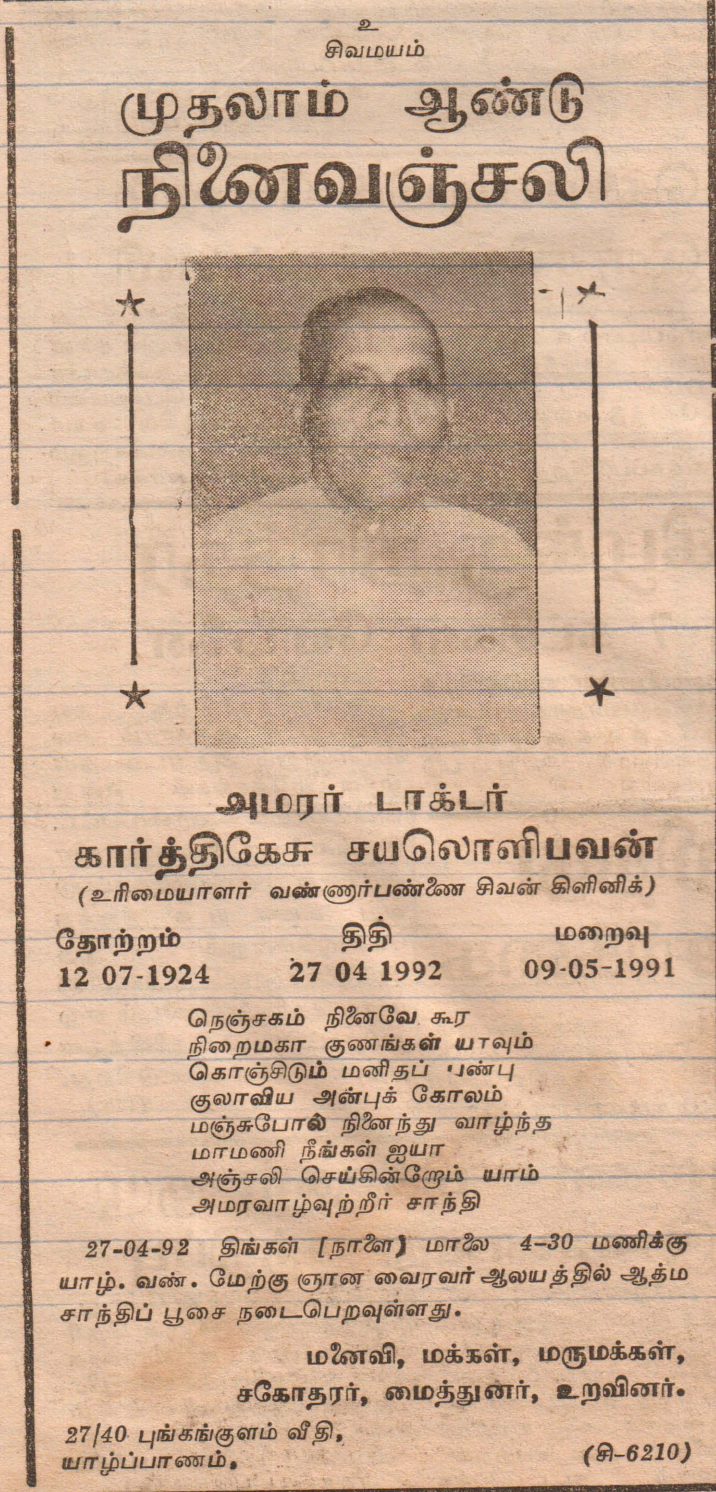 உ
சிவமயம்
முதலாம் ஆண்டு
நினைவஞ்சலி
அமரர் டாக்டர்
கார்த்திகேசு சயலொளிபவன்
(உரிமையாளர் வண்ணார்பண்ணை சிவன் கிளினிக்)
தோற்றம் திதி மறைவு
12 07-1924 27 04 1992 09-05-1991
நெஞ்சகம் நினைவே கூர
நிறைமகா குணங்கள் யாவும்
கொஞ்சிடும் மனிதப் பண்பு
குலாவிய அன்புக் கோலம்
மஞ்சுபோல் நினைந்து வாழ்ந்த
மாமணி நீங்கள் ஐயா
அஞ்சலி செய்கின்றோம் யாம்
அமரவாழ்வுற்றீர் சாந்தி
27-04-92 திங்கள் [நாளை) மாலை 4-30 மணிக்கு
யாழ். வண். மேற்கு ஞான வைரவர் ஆலயத்தில் ஆத்ம
சாந்திப் பூசை நடைபெறவுள்ளது.
மனைவி, மக்கள், மருமக்கள்,
சகோதரர், மைத்துனர், உறவினர்.
27/40 புங்கங்குளம் வீதி,
யாழ்ப்பாணம்.
(சி-6210)